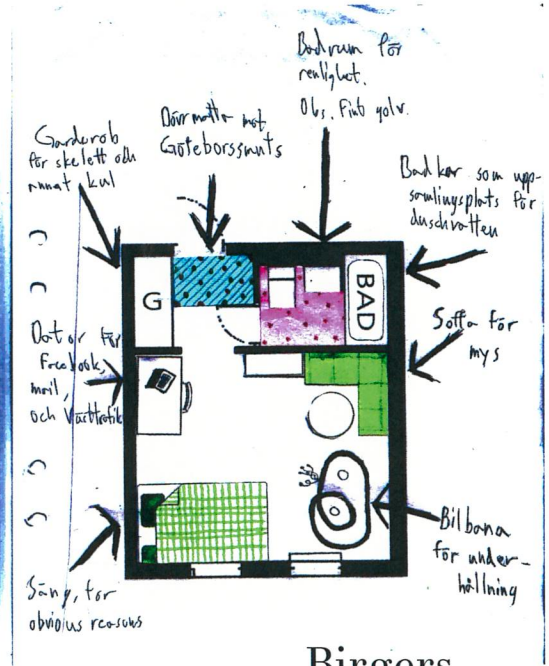 Badrum för
renlighet.
Obs. Fint golv.
Dörrmatta mot
Göteborssmuts
Garderob
för skelett och
annat kul
Badkar som upp-
samlingsplats för
duschvatten
G
BAD
Soffa för
mys
Dator för
Facebook,
mail,
och Västtrafik
Bilbana
för under-
hållning
Säng, for
obvious reasons
Birgers